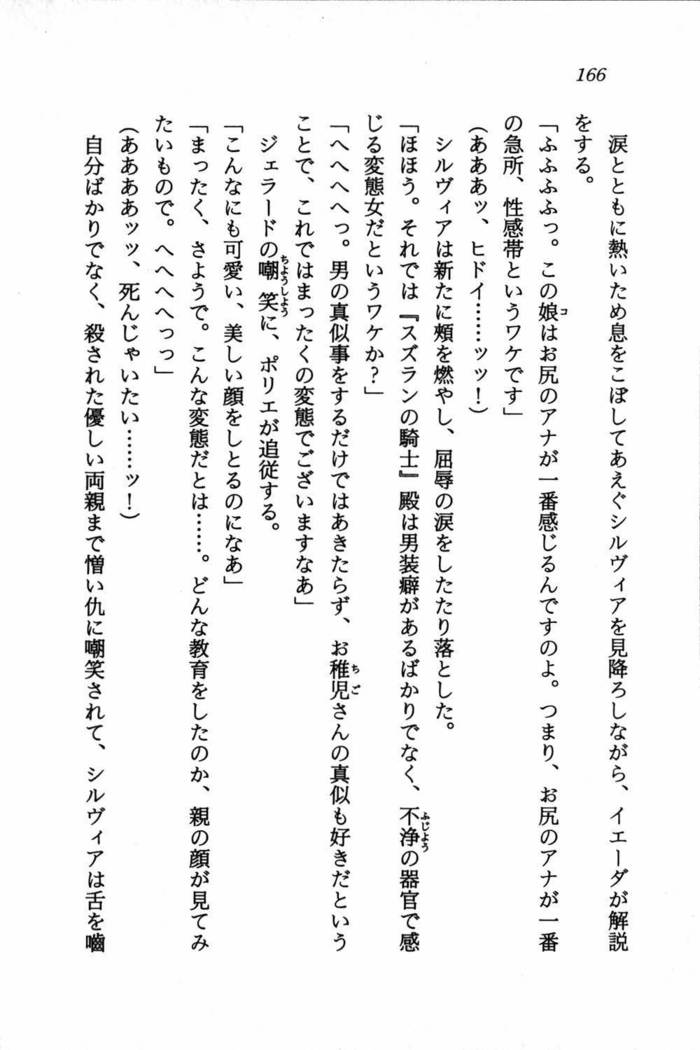 166
涙とともに熱いため息をこぼしてあえぐシルヴィアを見降ろしながら、イエーダが解説
をする。
「ふふふふっ。この娘はお尻のアナが一番感じるんですのよ。つまり、お尻のアナが一番
の急所、性感帯というワケです」
(あああッ、ヒドイ……ッッ!)
シルヴィアは新たに頰を燃やし、屈辱の涙をしたたり落とした。
「ほほう。それでは『スズランの騎士』殿は男装癖があるばかりでなく、不浄の器官で感
じる変態女だというワケか?」
「へへへへっ。男の真似事をするだけではあきたらず、お稚児さんの真似も好きだという
ことで、これではまったくの変態でございますなあ」
ジェラードの嘲笑に、ポリエが追従する。
「こんなにも可愛い、美しい顔をしとるのになあ」
「まったく、さようで。こんな変態だとは……。どんな教育をしたのか、親の顔が見てみ
たいもので。へへへへっっ」
(ああああッッ、死んじゃいたい……ッ!)
自分ばかりでなく、殺された優しい両親まで憎い仇に嘲笑されて、シルヴィアは舌を嚙